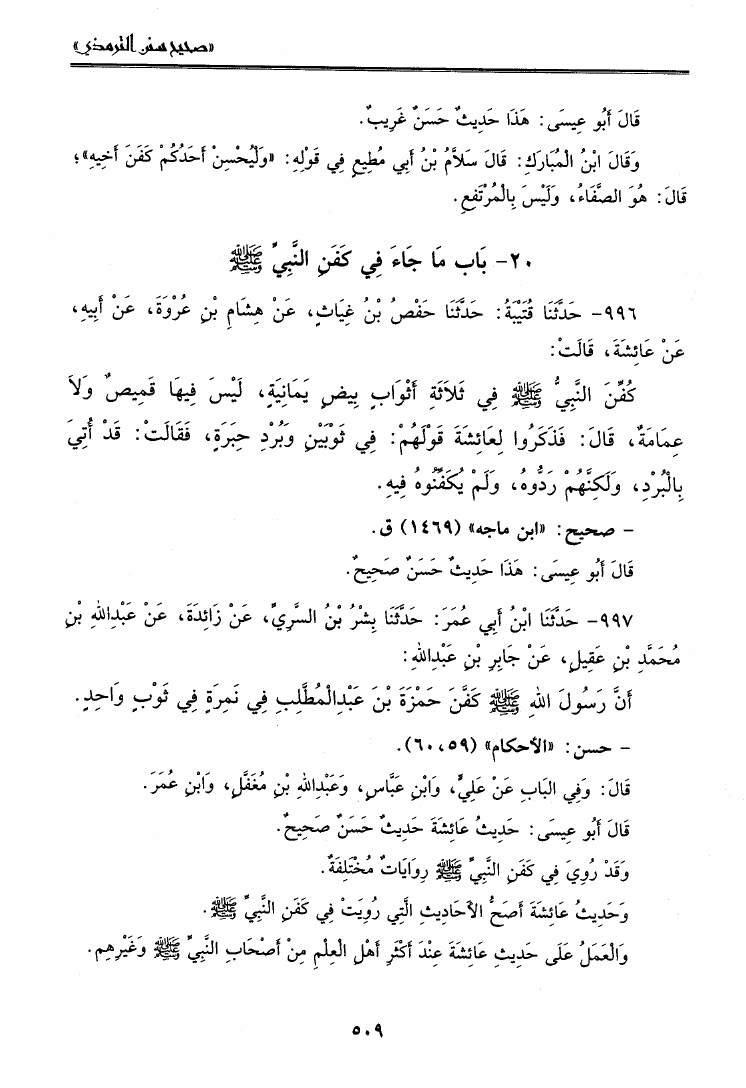 «صحيح سنن الترمذي»
قَالَ أَبُو عِيسَى: هَذَا حَدِيثٌ حَسَنٌ غَرِيبٌ.
وَقَالَ ابْنُ الْمُبَارَكِ: قَالَ سَلاَّمُ بْنُ أَبِي مُطِيعٍ فِي قَوْلِهِ: «وَلْيُحْسِنْ أَحَدُكُمْ كَفَنَ أَخِيهِ»؛
قَالَ: هُوَ الصَّفَاءُ، وَلَيْسَ بِالْمُرْتَفِعِ.
٢٠- بَاب مَا جَاءَ فِي كَفَنِ النَّبِيِّ ﷺ
٩٩٦- حَدَّثَنَا قُتَيْبَةُ: حَدَّثَنَا حَفْصُ بْنُ غِيَاثٍ، عَنْ هِشَامِ بْنِ عُرْوَةَ، عَنْ أَبِيهِ،
عَنْ عَائِشَةَ، قَالَتْ:
كُفِّنَ النَّبِيُّ ﷺ فِي ثَلاَثَةِ أَثْوَابٍ بِيضٍ يَمَانِيَةٍ، لَيْسَ فِيهَا قَمِيصٌ وَلاَ
عِمَامَةٌ، قَالَ: فَذَكَرُوا لِعَائِشَةَ قَوْلَهُمْ: فِي ثَوْبَيْنِ وَبُرْدِ حِبَرَةٍ، فَقَالَتْ: قَدْ أُتِيَ
بِالْبُرْدِ، وَلَكِنَّهُمْ رَدُّوهُ، وَلَمْ يُكَفِّنُوهُ فِيهِ.
- صحيح: «ابن ماجه» (١٤٦٩) ق.
قَالَ أَبُو عِيسَى: هَذَا حَدِيثٌ حَسَنٌ صَحِيحٌ.
٩٩٧- حَدَّثَنَا ابْنُ أَبِي عُمَرَ: حَدَّثَنَا بِشْرُ بْنُ السَّرِيِّ، عَنْ زَائِدَةَ، عَنْ عَبْدِاللهِ بْنِ
مُحَمَّدِ بْنِ عَقِيلٍ، عَنْ جَابِرِ بْنِ عَبْدِاللهِ:
أَنَّ رَسُولَ اللهِ ﷺ كَفَّنَ حَمْزَةَ بْنَ عَبْدِالْمُطَّلِبِ فِي نَمِرَةٍ فِي ثَوْبٍ وَاحِدٍ.
- حسن: «الأحكام» (٥٩، ٦٠).
قَالَ: وَفِي الْبَابِ عَنْ عَلِيٍّ، وَابْنِ عَبَّاسٍ، وَعَبْدِاللهِ بْنِ مُغَفَّلٍ، وَابْنِ عُمَرَ.
قَالَ أَبُو عِيسَى: حَدِيثُ عَائِشَةَ حَدِيثٌ حَسَنٌ صَحِيحٌ.
وَقَدْ رُوِيَ فِي كَفَنِ النَّبِيِّ ﷺ رِوَايَاتٌ مُخْتَلِفَةٌ.
وَحَدِيثُ عَائِشَةَ أَصَحُّ الأَحَادِيثِ الَّتِي رُوِيَتْ فِي كَفَنِ النَّبِيِّ ﷺ.
وَالْعَمَلُ عَلَى حَدِيثِ عَائِشَةَ عِنْدَ أَكْثَرِ أَهْلِ الْعِلْمِ مِنْ أَصْحَابِ النَّبِيِّ ﷺ وَغَيْرِهِم.
٥٠٩